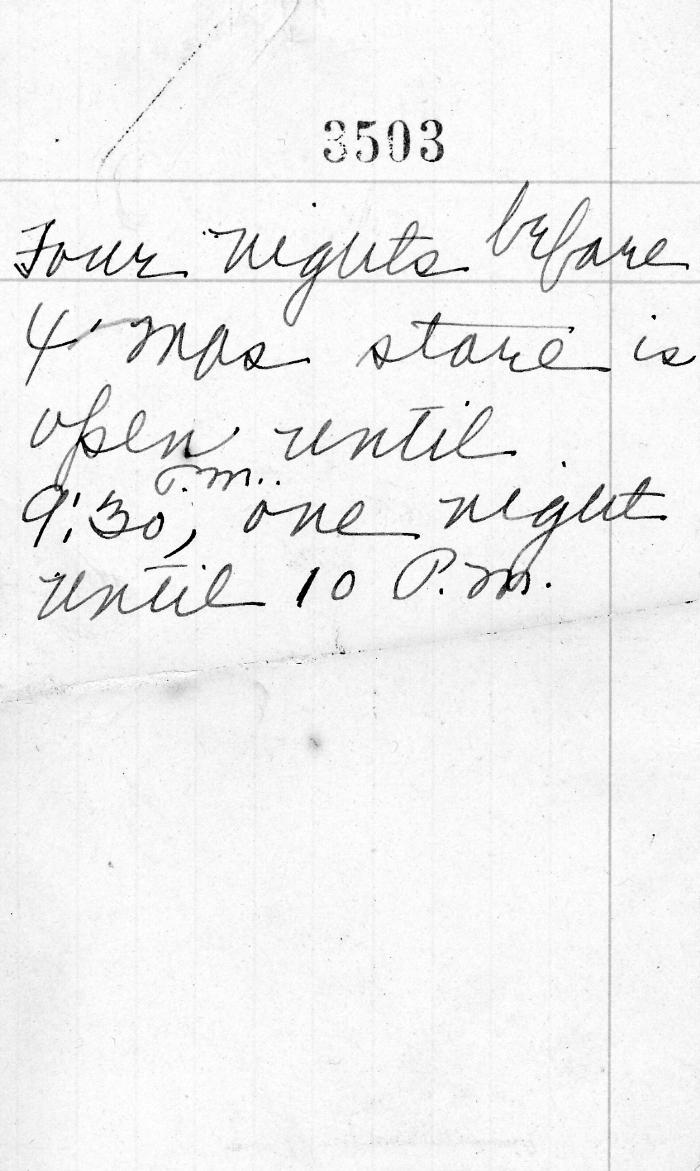 3503
Four nights before
X'mas store is
open until
9:30 P.m., one night
until 10 P.m.